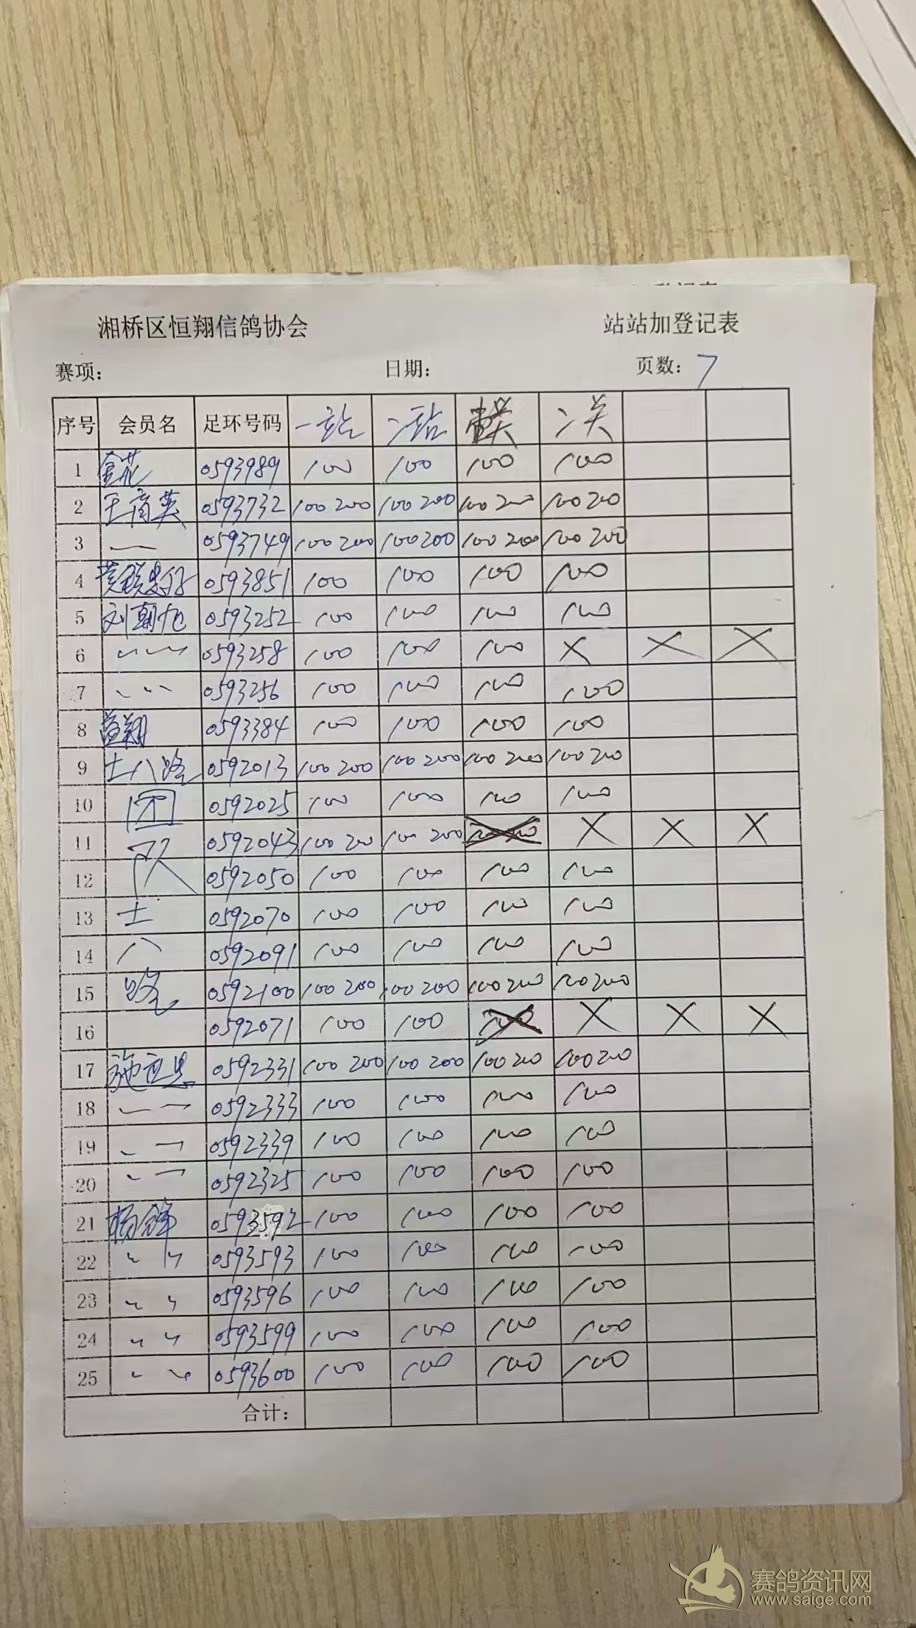 湘桥区恒翔信鸽协会 站站加登记表
赛项: 日期: 页数: 7
序号 会员名 足环号码 一站 二站 关 二关
1 0593989 100 100 100 100
2 王商英 0593732 100 200 100 200 100 200 100 200
3 〃 0593749 100 200 100 200 100 200 100 200
4 0593851 100 100 100 100
5 刘朝旭 0593252 100 100 100 100
6 〃 〃 0593258 100 100 100 X X X
7 〃 〃 0593256 100 100 100 100
8 益翔 0593384 100 100 100 100
9 士八路 0592013 100 200 100 200 100 200 100 200
10 团 0592025 100 100 100 100
11 队 0592043 100 200 100 200 X X X
12 0592050 100 100 100 100
13 士 0592070 100 100 100 100
14 八 0592091 100 100 100 100
15 路 0592100 100 200 100 200 100 200 100 200
16 0592071 100 100 100 X X X
17 0592331 100 200 100 200 100 200 100 200
18 〃 0592333 100 100 100 100
19 〃 0592339 100 100 100 100
20 〃 0592325 100 100 100 100
21 杨锋 0593592 100 100 100 100
22 〃 〃 0593593 100 100 100 100
23 〃 〃 0593596 100 100 100 100
24 〃 〃 0593599 100 100 100 100
25 〃 〃 0593600 100 100 100 100
合计:
赛鸽资讯网
www.saige.com